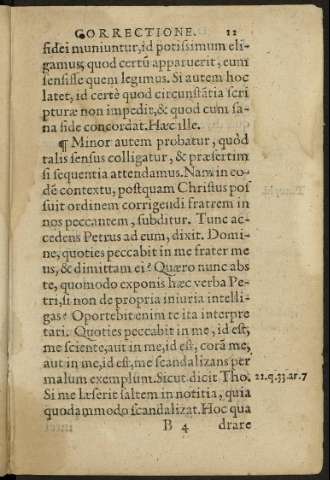 CORRECTIONE. 11
fidei muniuntur, id potissimum eli-
gamus, quod certũ apparuerit, eum
sensisse quem legimus. Si autem hoc
latet, id certè quod circunstãtia scri
pturæ non impedit, & quod cum sa-
na fide concordat. Hæc ille.
¶ Minor autem probatur, quòd
talis sensus colligatur, & præsertim
si sequentia attendamus. Nam in eo-
dẽ contextu, postquam Christus pos
suit ordinem corrigendi fratrem in
nos peccantem, subditur. Tunc ac-
cedens Petrus ad eum, dixit. Domi-
ne, quoties peccabit in me frater me
us, & dimittam ei? Quæro nunc abs
te, quomodo exponis hæc verba Pe-
tri, si non de propria iniuria intelli-
gas? Oportebit enim te ita interpre
tari. Quoties peccabit in me, id est,
me sciente, aut in me, id est, corã me,
aut in me, id est, me scandalizans per
malum exemplum. Sicut dicit Tho. 22.q.33.ar.7
Si me læserit saltem in notitia, quia
quodammodo scandalizat. Hoc qua
B 4 drare